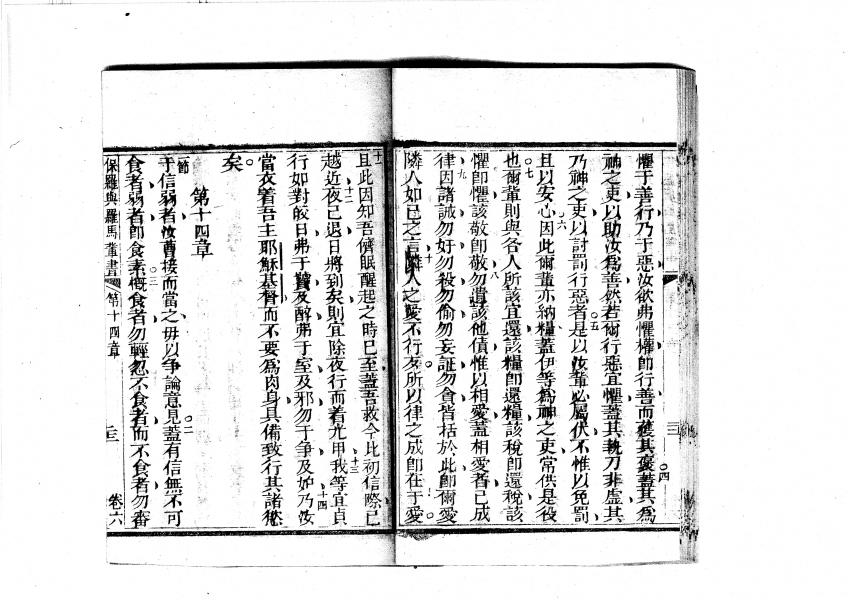 懼于善行乃于惡汝欲弗懼權卽行善而獲其褒蓋其爲
神之吏以助汝爲善然若爾行惡宜懼蓋其執刀非虛其
乃神之吏以討罰行惡者是以汝輩必屬伏不惟以免罰
且以安心因此爾輩亦納糧蓋伊等爲神之吏常供是役
也爾輩則與各人所該宜還該糧卽還糧該稅卽還稅該
懼卽懼該敬卽敬勿遺該他債惟以相愛蓋相愛者已成
律因諸誡勿好勿殺勿偷勿妄証勿貪皆括於此卽爾愛
隣人如已之言隣人之愛不行歹所以律之成卽在于愛
且此因知吾儕眠醒起之時已至蓋吾救今比初信際已
越近夜已退日將到矣則宜除夜行而着光甲我等宜貞
行如對皎日弗于饕及醉弗于室及邪勿于爭及妒乃汝
當衣着吾主耶穌基督而不要爲肉身具備致行其諸慾
矣
第十四章
于信弱者汝曹接而當之毋以爭論意見蓋有信無不可
食者弱者卽食素慨食者勿輕忽不食者而不食者勿審
保羅與羅馬輩書 第十四章 卷六